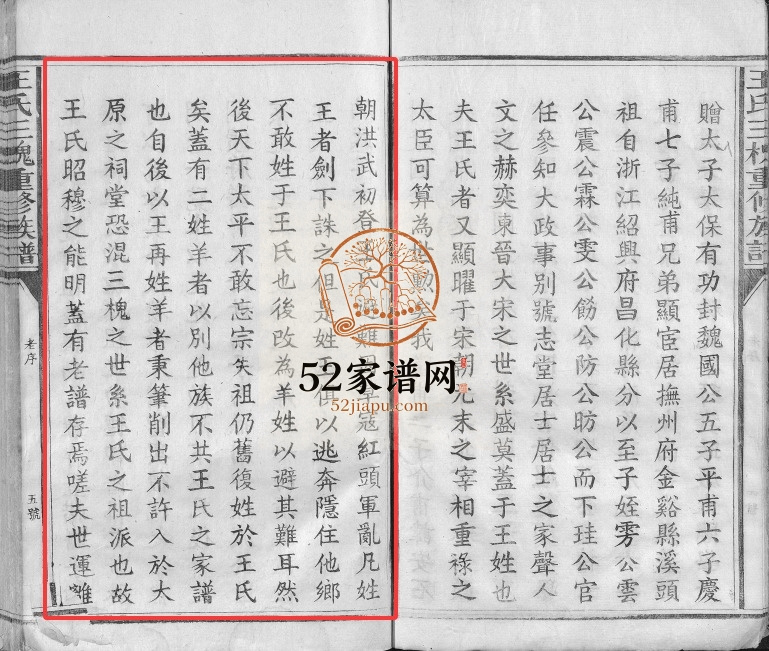 贈太子太保有功封魏國公五子平甫六子慶
甫七子純甫兄弟顯宦居撫州府金谿縣溪頭
祖自浙江紹興府昌化縣分以至子姪雱公雲
公震公霖公雯公飭公防公昉公而下珪公官
任參知大政事別號志堂居士居士之家聲人
文之赫奕東晉大宋之世系盛莫蓋于王姓也
夫王氏者又顯曜于宋朝元末之宰相重祿之
太臣可算為 勳 我
朝洪武初登 民 難 草寇紅頭軍亂凡姓
王者劍下誅之但是姓王 俱以逃奔隱住他鄉
不敢姓于王氏也後改為羊姓以避其難耳然
後天下太平不敢忘宗失祖仍舊復姓於王氏
矣蓋有二姓羊者以別他族不共王氏之家譜
也自後以王再姓羊者秉筆削出不許入於大
原之祠堂恐混三槐之世系王氏之祖派也故
王氏昭穆之能明蓋有老譜存焉嗟夫世運雖
王氏三槐重修族譜
老序
五號
王氏三槐重修族譜
52家谱网
52jiapu.com